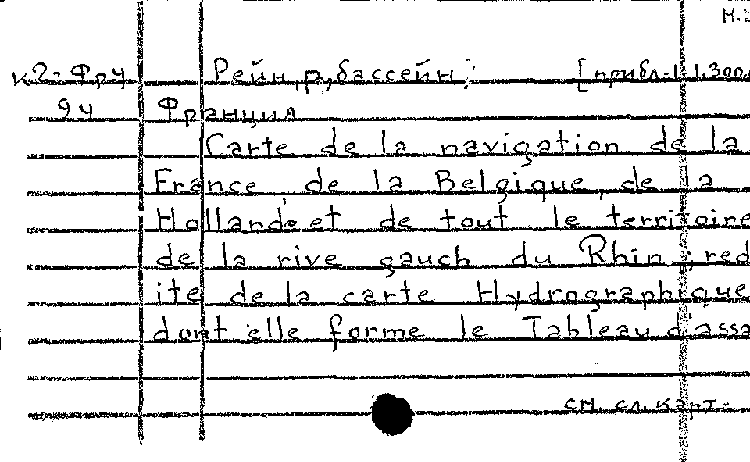 М.
к2-Фру Рейн, р, бассейн; [прибл. 1:1.300.
94 Франция
Carte de la navigation de la
France, de la Belgique, de la
Hollande et de tout le territoire
de la rive gauch du Rhin; red
ite de la carte Hydrographique
dont elle forme le Tableau d'assa
см. сл. карт.